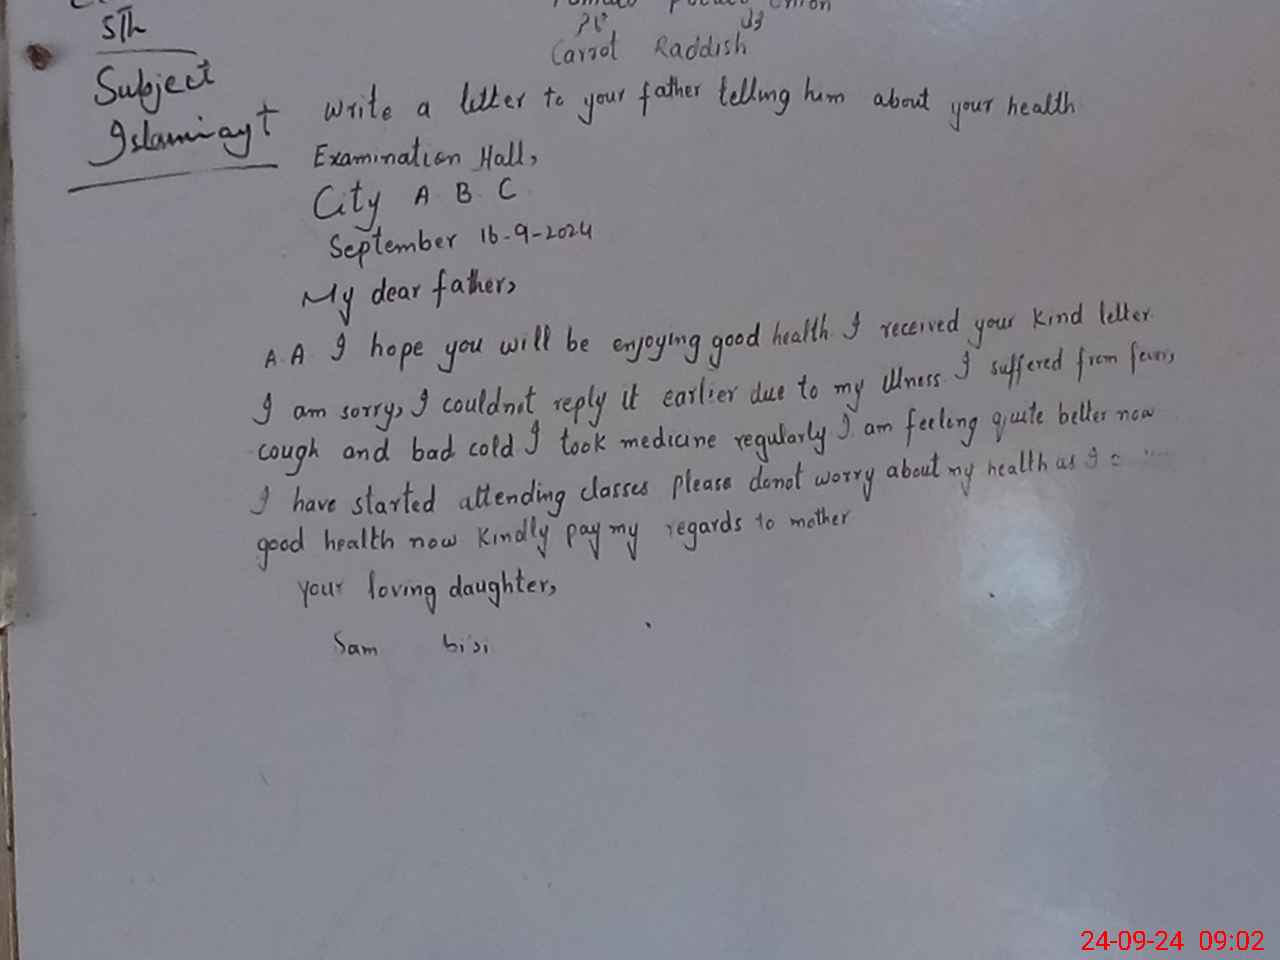 Potato Onion
Carrot Raddish
5Th
Subject
Islamiayt
Write a letter to your father telling him about your health
Examination Hall,
City A B C
September 16-9-2024
My dear father,
A.A I hope you will be enjoying good health. I received your kind letter.
I am sorry, I couldnot reply it earlier due to my illness. I suffered from fever,
cough and bad cold I took medicine regularly I am feeling quite better now
I have started attending classes please donot worry about my health as I
good health now kindly pay my regards to mother
your loving daughter,
Sam bisi
24-09-24 09:02